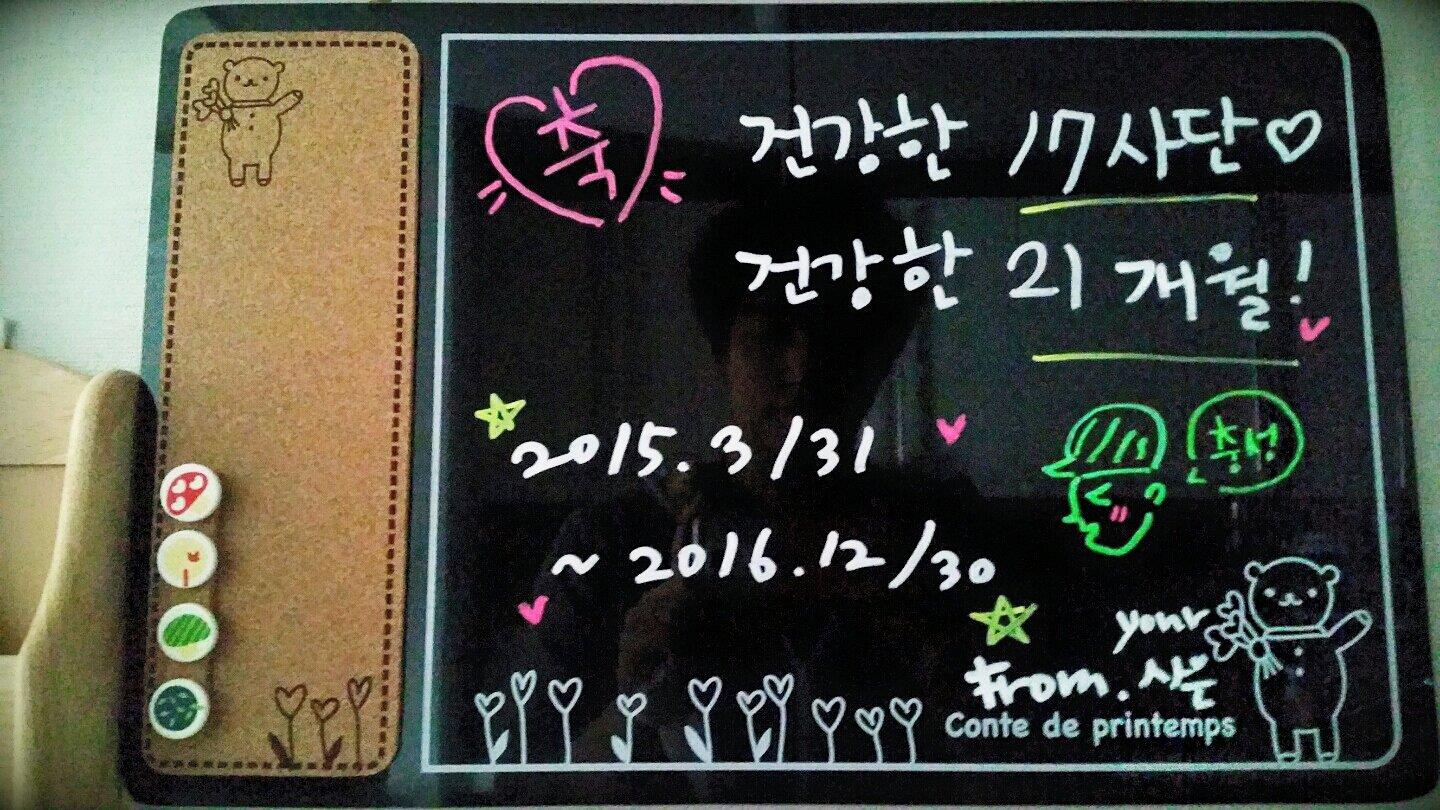 축
건강한 17사단♡
건강한 21개월!
2015.3/31
~2016.12/30
충성
your
from. 시은
Conte de printemps